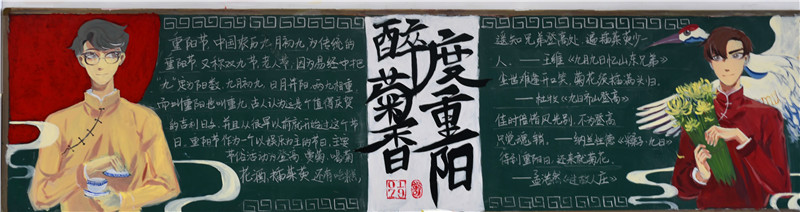 重阳节，中国农历九月初九，为传统的
重阳节，又称双九节，老人节，因为易经中把
"九"定为阳数，九月初九，日月并阳，两九相重
而叫重阳也叫重九，古人认为这是个值得庆贺
的吉利日子，并且从很早以前就开始过这个节
日。重阳节作为一个以娱乐为主的节日，主要
节俗活动为登高，赏菊，喝菊
花酒，插茱萸，还有吃糕
醉菊香
度重阳
遥知兄弟登高处，遍插茱萸少一
人。——王维《九月九日忆山东兄弟》
尘世难逢开口笑，菊花须插满头归。
——杜牧《九日齐山登高》
佳时倍惜风光别，不为登高
只觉魂销。——纳兰性德《采桑子·九日》
待到重阳日，还来就菊花。
——孟浩然《过故人庄》